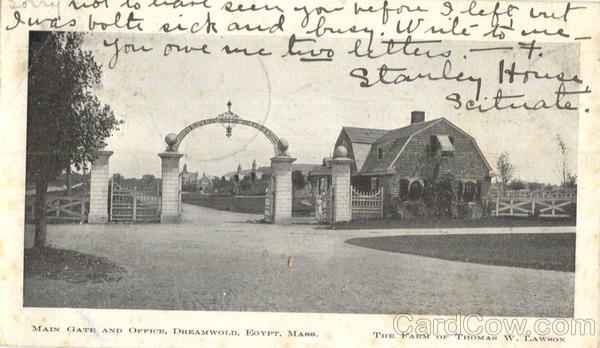 Sorry not to have seen you before I left but
I was both sick and busy. Write to me—
You owe me two letters. — F.
Stanley House,
Scituate.
Main Gate and Office, Dreamwold, Egypt, Mass.
The Farm of Thomas W. Lawson
CardCow.com